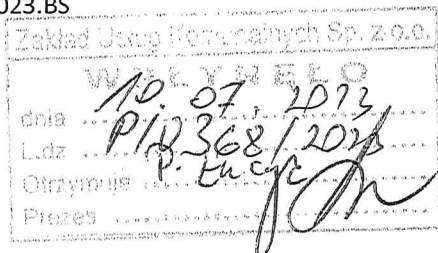 023.BS
Zakład Usług Komunalnych Sp. z o.o.
WPŁYNĘŁO
dnia 10.07.2023
L.dz P/0368/2023
Otrzymuje P.
Prezes